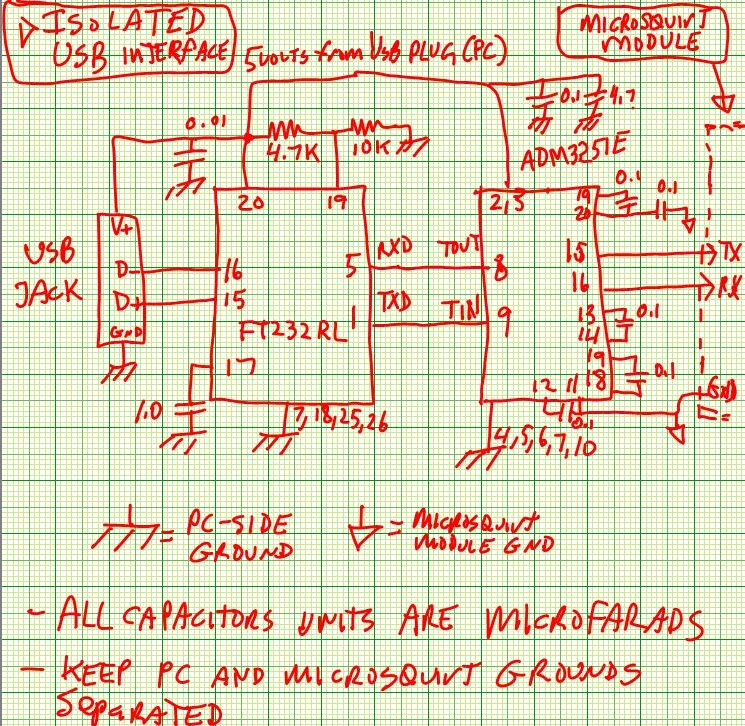 ▷ ISOLATED
USB INTERFACE
5 volts from USB PLUG (PC)
MICROSQUIRT
MODULE
0.01
4.7K
10K
0.1
4.7
ADM3251E
20
19
2,3
19
20
0.1
0.1
V+
D-
D+
GND
USB
JACK
16
15
17
1.0
FT232RL
5
RXD
TOUT
8
1
TXD
TIN
9
15
TX
16
RX
13
14
0.1
19
18
0.1
12
11
0.1
GND
7,18,25,26
4,5,6,7,10
= PC-SIDE
GROUND
= MICROSQUIRT
MODULE GND
- ALL CAPACITORS UNITS ARE MICROFARADS
- KEEP PC AND MICROSQUIRT GROUNDS
SEPARATED